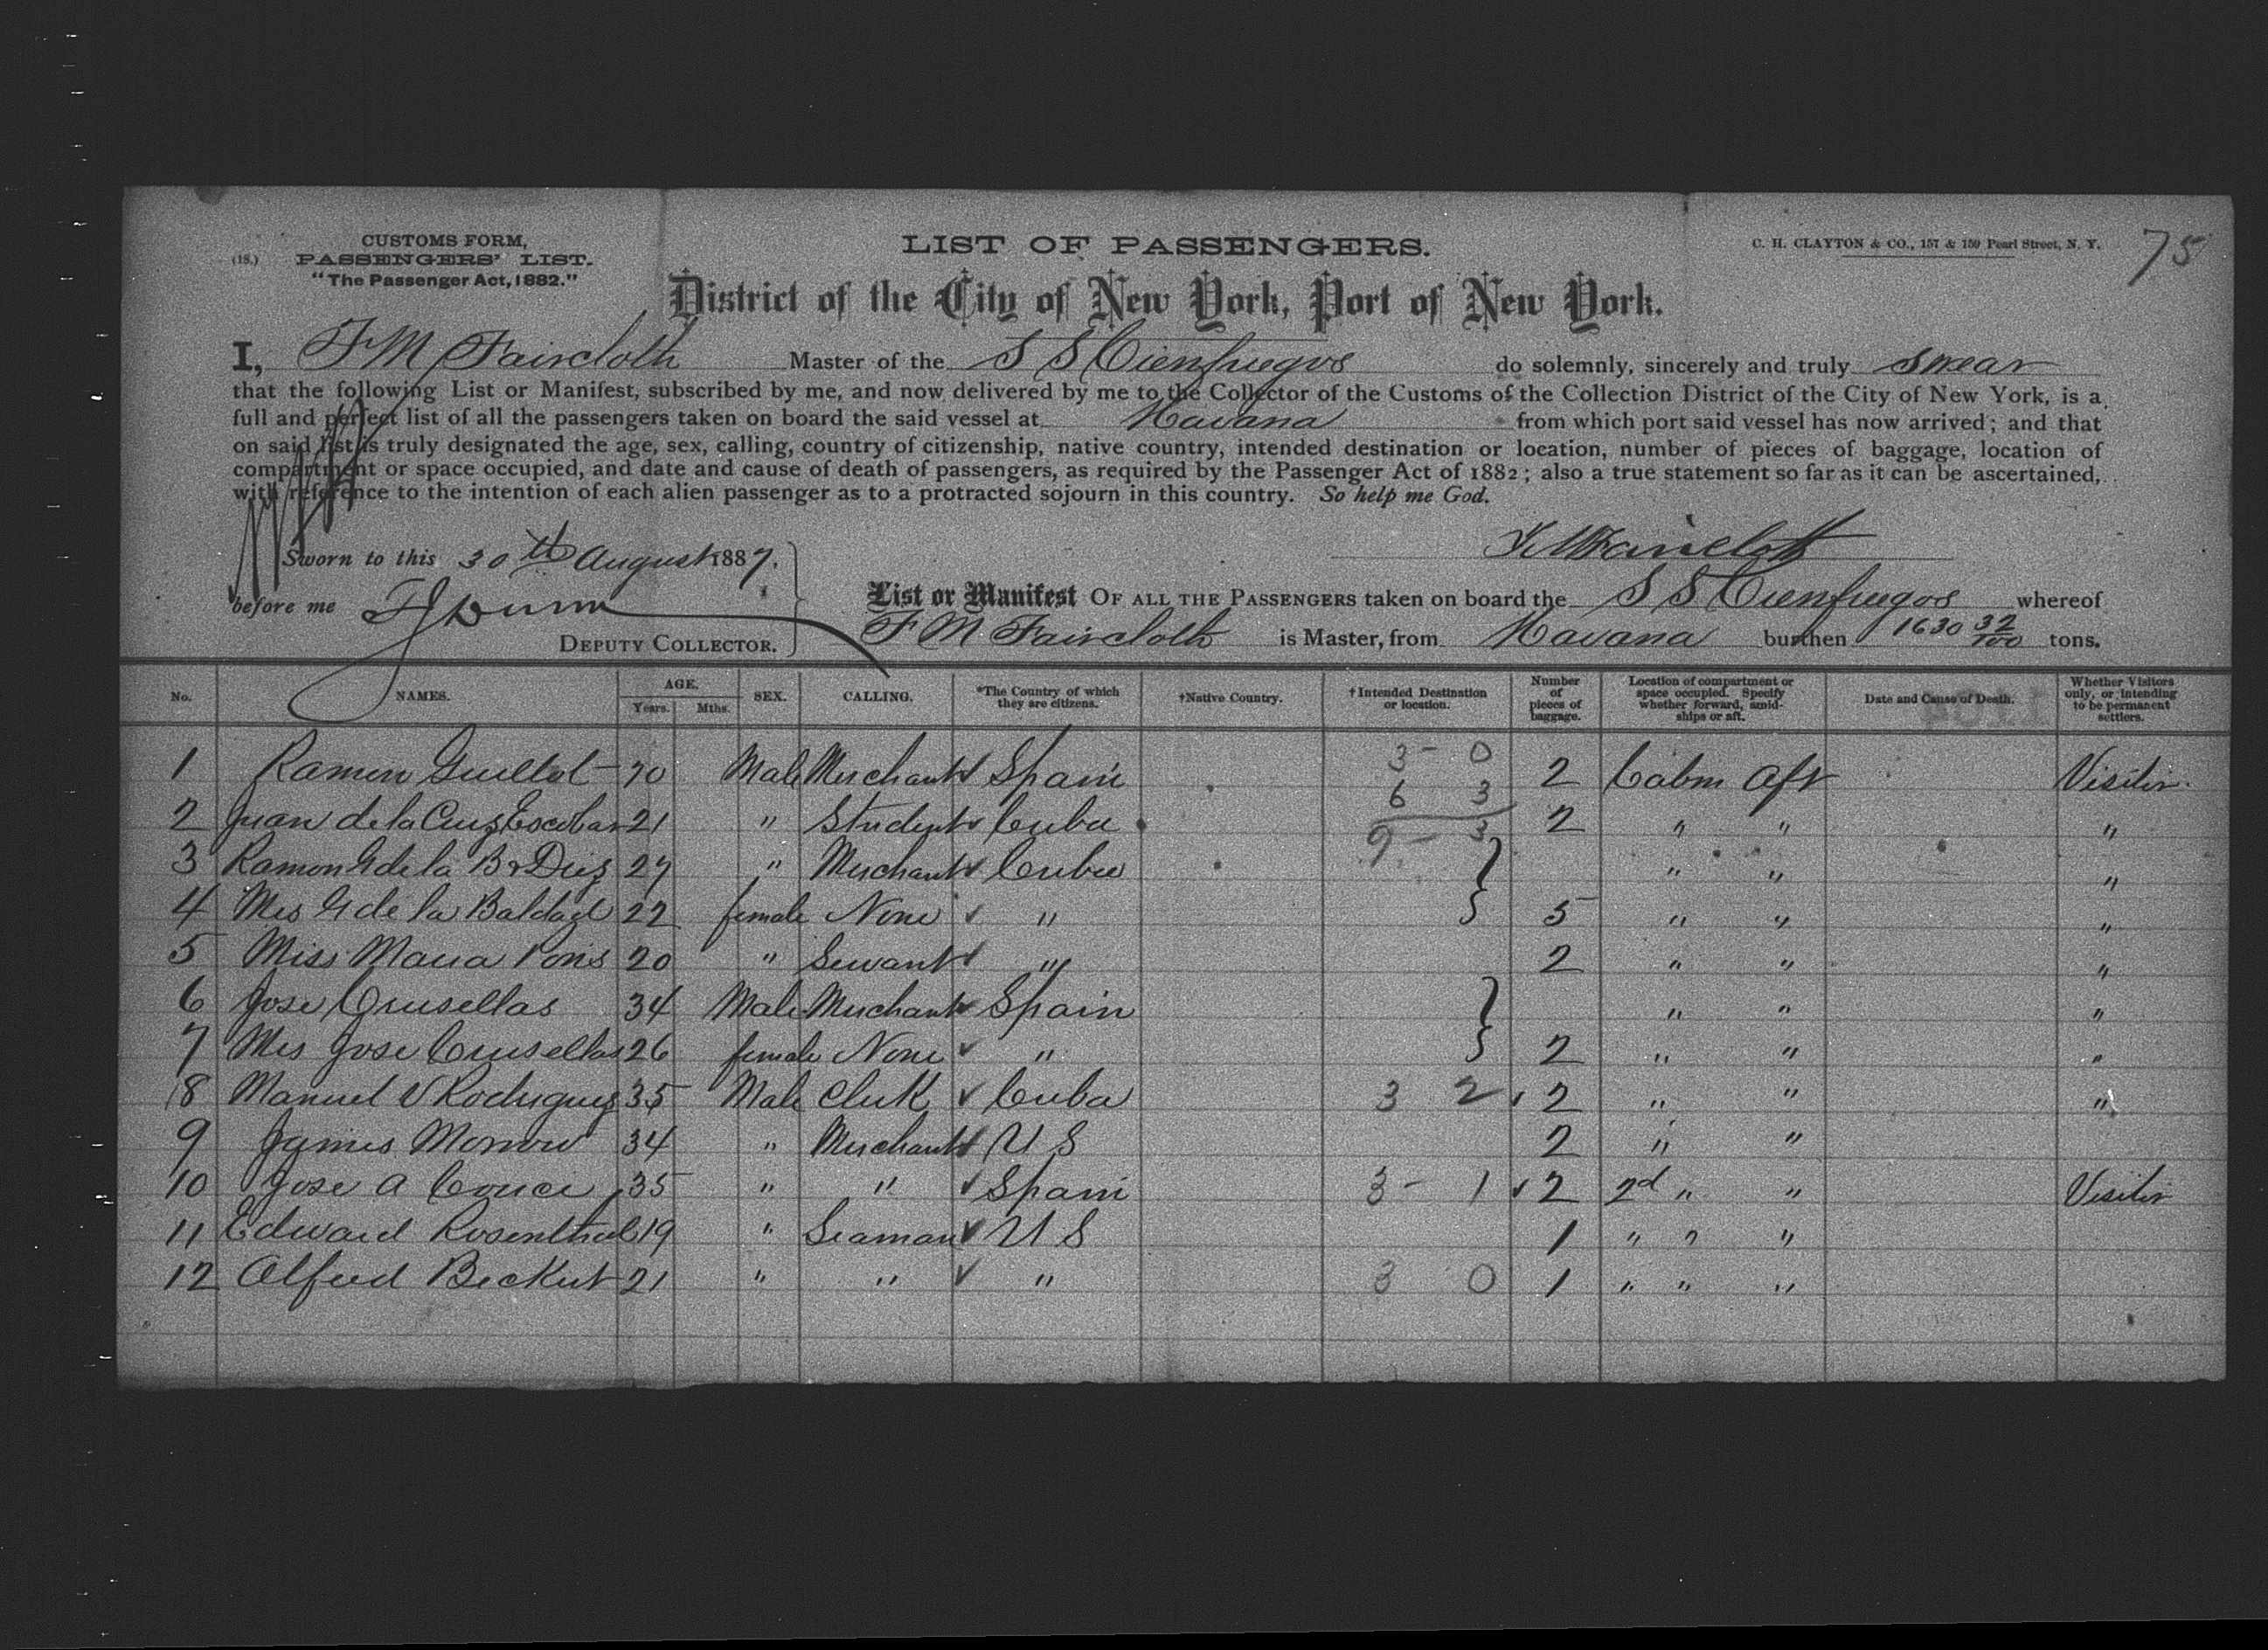 CUSTOMS FORM,
(18.) PASSENGERS' LIST.
"The Passenger Act, 1882."
LIST OF PASSENGERS.
C. H. CLAYTON & CO., 157 & 159 Pearl Street, N. Y.
75
District of the City of New York, Port of New York.
I, F M Faircloth Master of the S S Cienfuegos do solemnly, sincerely and truly swear
that the following List or Manifest, subscribed by me, and now delivered by me to the Collector of the Customs of the Collection District of the City of New York, is a
full and perfect list of all the passengers taken on board the said vessel at Havana from which port said vessel has now arrived; and that
on said list is truly designated the age, sex, calling, country of citizenship, native country, intended destination or location, number of pieces of baggage, location of
compartment or space occupied, and date and cause of death of passengers, as required by the Passenger Act of 1882; also a true statement so far as it can be ascertained,
with reference to the intention of each alien passenger as to a protracted sojourn in this country. So help me God.
F M Faircloth
Sworn to this 30th August 1887.
before me
DEPUTY COLLECTOR.
List or Manifest OF ALL THE PASSENGERS taken on board the S S Cienfuegos whereof
F M Faircloth is Master, from Havana burthen 1630 32/100 tons.
No. NAMES. AGE. Years. Mths. SEX. CALLING. *The Country of which they are citizens. †Native Country. †Intended Destination or location. Number of pieces of baggage. Location of compartment or space occupied. Specify whether forward, amidships or aft. Date and Cause of Death. Whether Visitors only, or intending to be permanent settlers.
1 Ramon Guillot 70 Male Merchant Spain 3 - 0 2 Cabin Aft Visitor
2 Juan de la Cruz Escobar 21 " Student Cuba 6 3 2 " " "
3 Ramon G de la B Diez 27 " Merchant Cuba 9 - 3 " " "
4 Mrs G de la 22 female None " 5 " " "
5 Miss Maria Pons 20 " Servant " 2 " " "
6 Jose Crusellas 34 Male Merchant Spain " " "
7 Mrs Jose Crusellas 26 female None " 2 " " "
8 Manuel V Rodriguez 35 Male Clerk Cuba 3 2 2 " " "
9 James Morrow 34 " Merchant U S 2 " "
10 Jose A 35 " " Spain 3 - 1 2 2d " " Visitor
11 Edward Rosenthal 19 " Seaman U S 1 " " "
12 Alfred Beckert 21 " " " 3 0 1 " " "